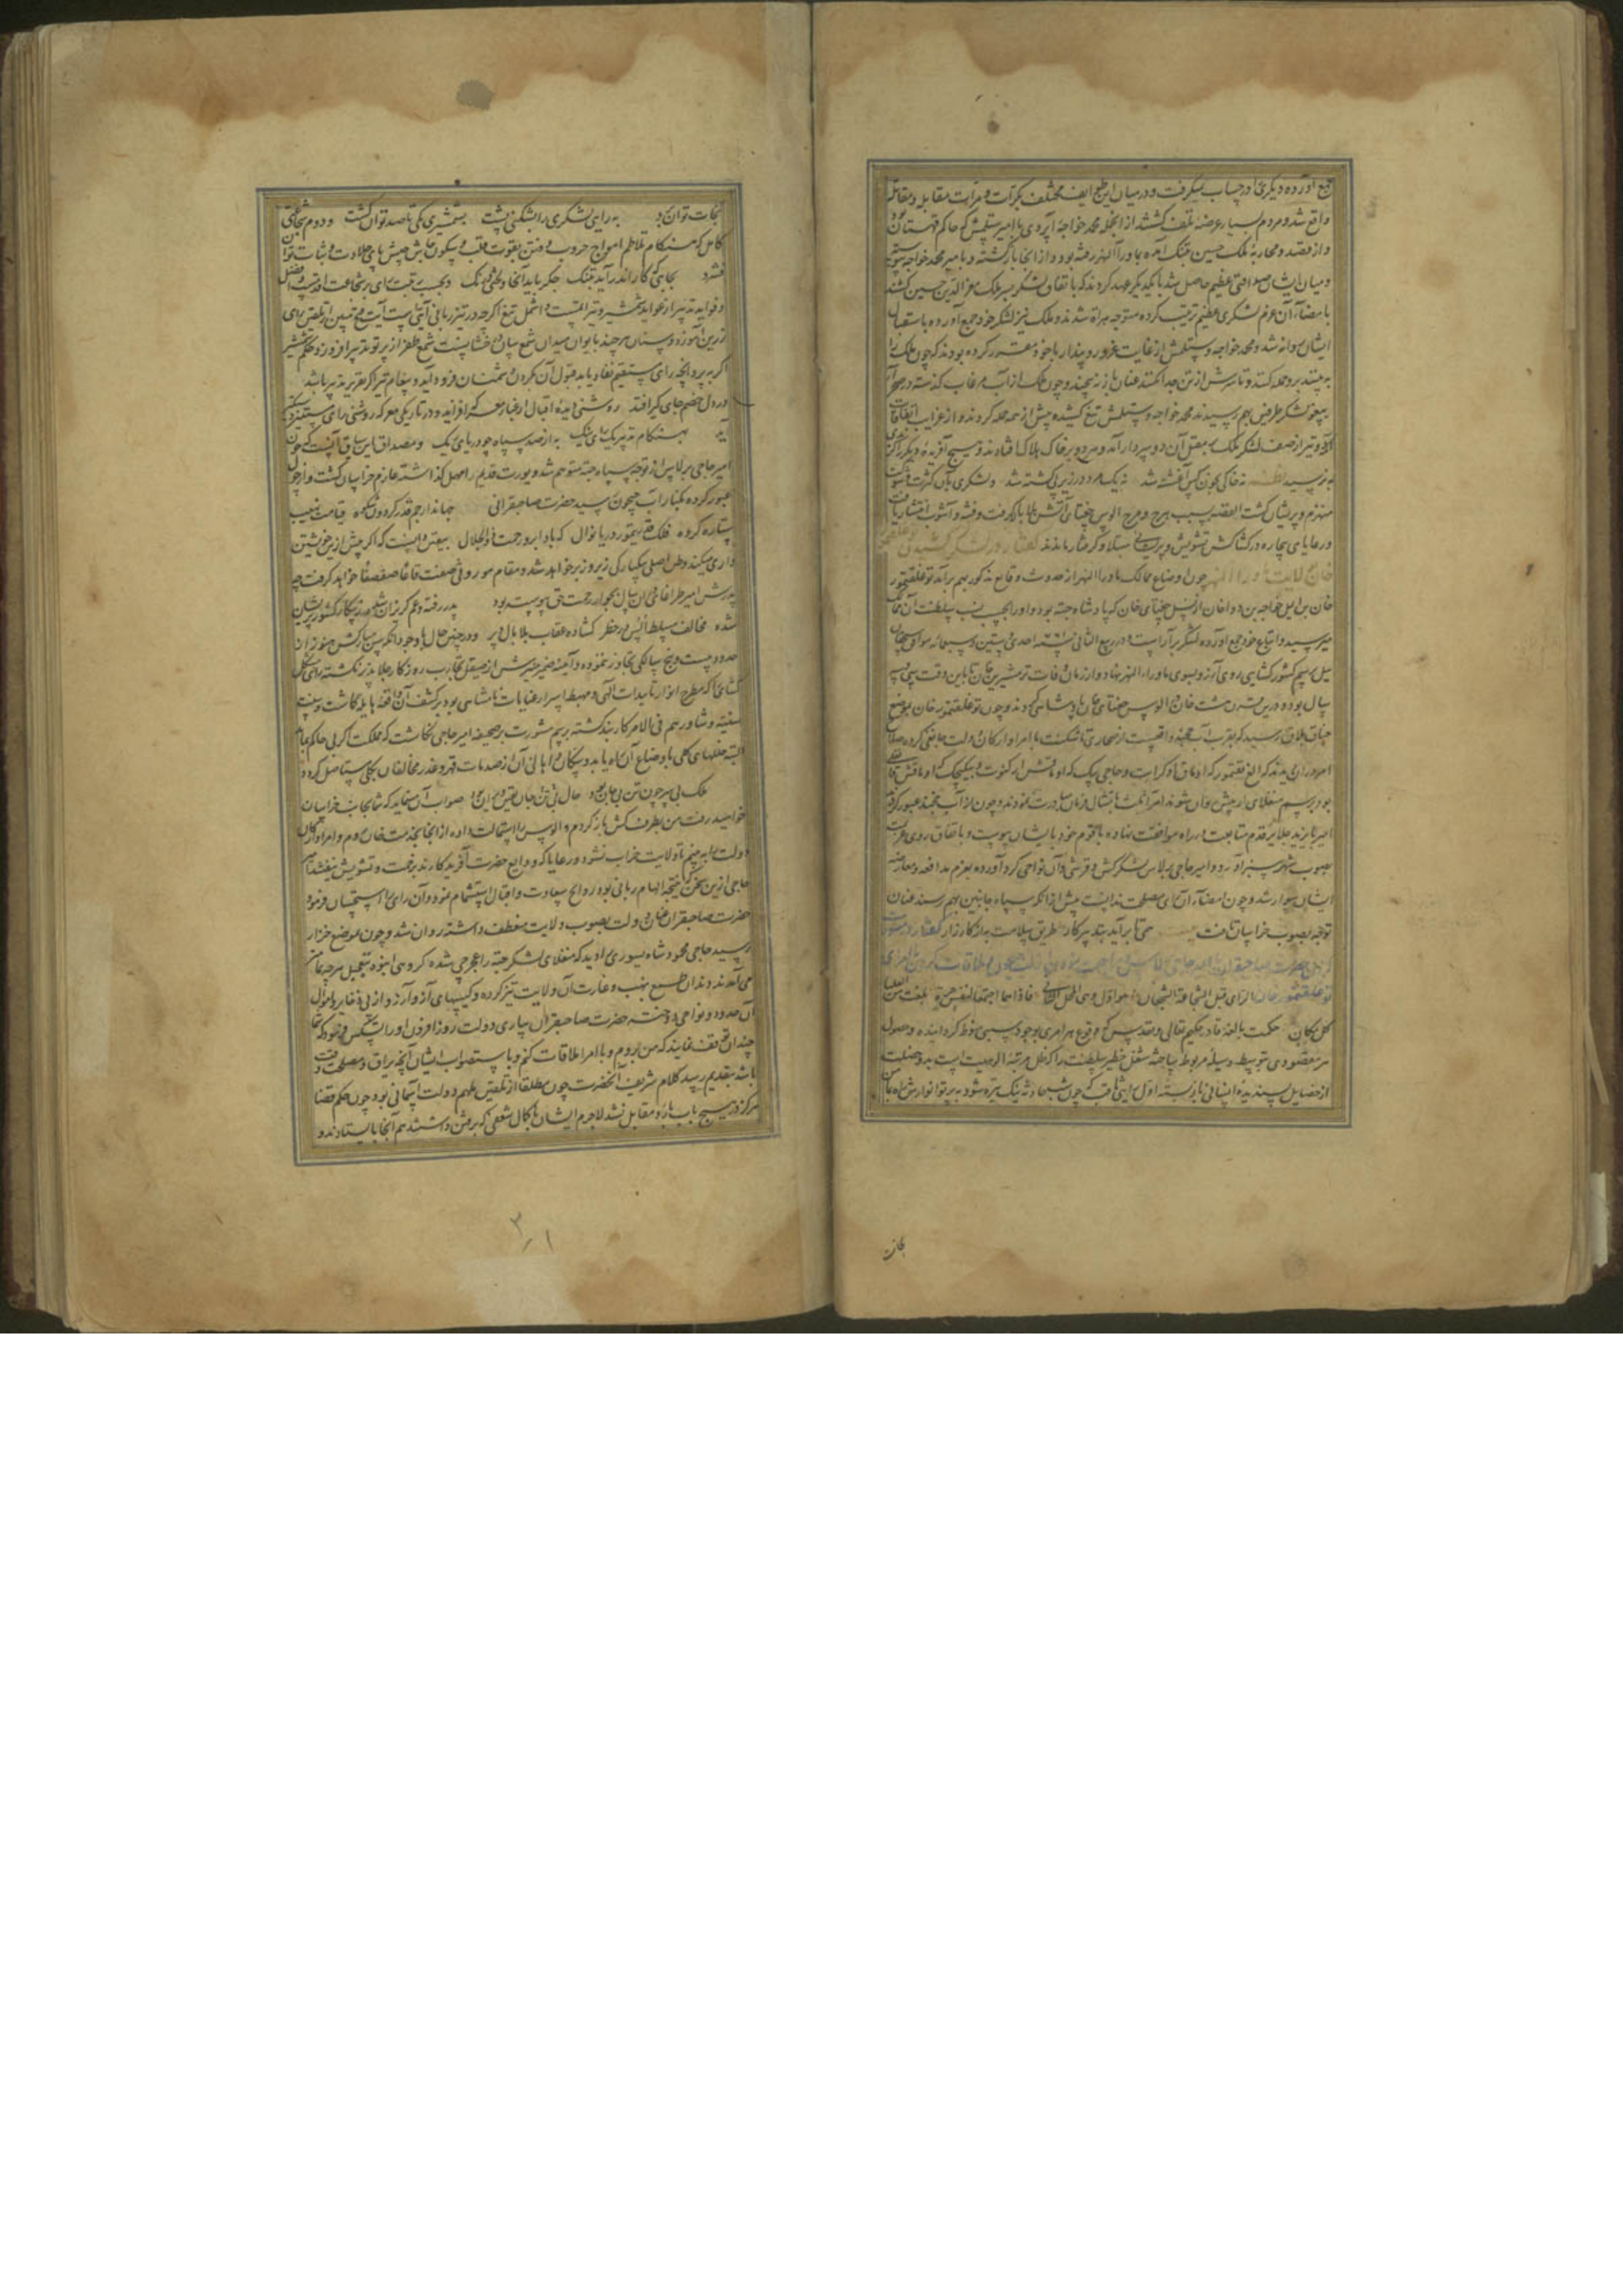 جمع آورده دیگری را در حساب نمیگرفت و در میان این طوایف مختلف بکرات و مرات مقابله و مقاتله
واقع شد و مردم بسیار عرضهٔ تلف کشتند از انجمله محمد خواجه اپردی با امیر ستلمش که حاکم قهستان بود
و از قصد و محاربهٔ ملک حسین بتنک آمده بماوراالنهر رفته بود و از انجا بازکشته و با امیر محمد خواجه پیوسته
و میان ایشان صداقتی عظیم حاصل شد با یکدیکر عهد کردند که باتفاق لشکر بر سر ملک معزالدین حسین کشند
بامضاء آن عزم لشکری عظیم ترتیب کرده متوجه هراة شدند و ملک نیز لشکر خود جمع آورده باستقبال
ایشان روانه شد و محمد خواجه و ستلمش از غایت غرور و پندار با خود مقرر کرده بودند که چون ملک را
به بینند برو حمله کنند و تا سرش از تن جدا نکنند عنان باز نه پیچند و چون ملک از آب مرغاب کذشته در صحرا
بیغو لشکر طرفین بهم رسیدند محمد خواجه و ستلمش تیغ کشیده پیش از همه حمله کردند و از غرایب اتفاقات
دو تیر از صف لشکر ملک بمقتل آن دو سردار آمد و هر دو بر خاک هلاک افتادند و هیچ آفریده دیکر را
نرسید نه خاکی بخون کس آغشته شد نه یک مرد در زیر پی کشته شد و لشکری بآن کثرت و شوکت
منهزم و پریشان کشت القصه بسبب هرج و مرج الوس چغتای آتش بلا بالا گرفت و فتنه و آشوب انتشار یافت
و رعایای بیچاره در کشاکش تشویش و پریشانی مبتلا و کرفتار ماندند گفتار در لشکر کشیدن
خان بجانب ماوراالنهر چون اوضاع ممالک ماوراالنهر از حدوث وقایع مذکور بهم برآمد توغلقتمور
خان بن ایمل خواجه بن دوا خان از نسل چغتای خان که پادشاه جته بود و او را بحسب نسب سلطنت آن
میرسید و اتباع خود جمع آورده لشکر بر آراست و در ربیع الثانی سنه ۷۶۱ احدی و ستین و سبعمائه
برسم کشورکشایی روی آرزو بسوی ماوراءالنهر نهاد و از زمان وفات ترمشیرین خان تا باین وقت سی و سه
سال بود و درین مدت هشت خان در الوس چغتای خان پادشاهی کردند و چون توغلقتمور خان بموضع
چناق بلاق رسید که بقرب آب خجند واقعست از صحاری تاشکنت با امرا و ارکان دولت جانقی کرده صلاح
امر در ان دیدند که الغ تقتمور که از اوماق او کرایت و حاجی بیک که اوماقش ارکنوت و بیکیجک که اوماقش
بود برسم منغلای از پیش روان شوند امراء ثلث بامتثال فرمان مبادرت نمودند و چون از آب خجند عبور کردند
امیر بایزید جلایر قدم متابعت در راه موافقت نهاده با قوم خود بایشان پیوست و باتفاق روی عزیمت
بصوب شهر سبز آوردند و امیر حاجی برلاس لشکر کش و قرشی و آن نواحی کرد آورده بعزم مدافعه و معارضه
ایشان سوار شد و چون امضاء آن رای مصلحت ندانست پیش از انکه سپاه جانبین بهم رسند عنان
توجه بصوب خراسان تافت بیت همی تا برآید بتدبیر کار طریق سلامت به از کارزار گفتار در
حضرت صاحبقران با امیر حاجی برلاس و مراجعت نمودن از لب جیحون و ملاقات کردن با امرای
توغلقتمور خان الرای قبل الشجاعة الشجعان هو اول و هی المحل الثانی فاذا هما اجتمعا لنفس مرة بلغت من العلیا
کل مکان حکمت بالغهٔ قادر حکیم تعالی و تقدس که وقوع هر امری بوجود سببی منوط کردانیده و حصول
هر مقصودی بتوسط وسیلهٔ مربوط ساخته شغل خطیر سلطنت را که ظل مرتبهٔ الوهیت است بدو خصلت
از خصایل پسندیدهٔ انسانی باز بسته اول رایی ثاقب که چون شب حادثه نیک تیره شود به پرتو انوارش راه
نجات
نجات توان برد به رایی لشکری را بشکنی پشت بشمشیری یکی تا صد توان کشت و دوم شجاعتی
کامل که هنکام تلاطم امواج حروب و فتن بقوت قلب و سکون جاش پای جلادت و ثبات تواند
فشرد بجایی که کار اندر آید بتنک جکر باید آنجا و لختی درنک و بحسب رتبت رای بر شجاعت اقدمست
و فواید تدبیر از عواید شمشیر و تیر اتمست و اشمل تیغ اکرچه در تیز زبانی آیتی است
زرین آموزد و سنان هر چند بایوان میدان شمع سان درخشانست شمع ظفر از پرتو تدبیر افروزد و حکم شمشیر
اکر به پروانچهٔ رای مستقیم نفاذ یابد قبول آن بکردن دشمنان فرود آید و پیغام تیر اکر بتقریر تدبیر باشد
در دل خصم جای کیر افتد روشنی دیدهٔ اقبال از غبار معرکه افزاید و در تاریکی معرکه روشنی رای
آید بهنکام تدبیر یک رای نیک به از صد سپاه چو دریای یک و مصداق این سیاق آنست که چون
امیر حاجی برلاس از توجه سپاه جته متوهم شد و یورت قدیم را مهمل کذاشته عازم خراسان کشت و از
عبور کرده بکنار آب جیحون رسید حضرت صاحبقرانی جهاندار جم قدر کردون شکوه قیامت نهیب
ستاره کروه فلک قدر تیمور دریا نوال که باد ابرو رحمت ذوالجلال بیقین دانست که اکر پیش ازین خویشتن
داری میکند وطن اصلی بیکبارکی زیر و زبر خواهد شد و مقام موروثی صفت قاعا صفصفا خواهد کرفت چه
پدرش امیر طراغای در ان سال بجوار رحمت حق پیوسته بود پدر رفته و عم کریزان شده ز بیکانه کشور پریشان
شده مخالف مسلط الس در خطر کشاده عقاب بلا بال و پر و در چنین حال با وجود انکه سن مبارکش هنوز از
حدود بیست و پنج سالکی تجاوز ننموده و آیینهٔ ضمیر منیرش از صیقل تجارب روزکار جلا پذیر نکشته رای مشکل
کشای که مطرح انوار تاییدات الهی و مهبط اسرار عنایات نامتناهی بود بر کشف آن واقعهٔ هایله کاشت و بسنت
سنیهٔ و شاورهم فی الامر کاربند کشته برسم مشورت بر صحیفهٔ امیر حاجی نکاشت که مملکت اکر بی حاکم ماند
البته خللهای کلی باوضاع آن راه یابد و سکان و اهالی آن از صدمات قهر و غدر مخالفان بکلی مستاصل کردد
ملک بی سر چون تن بی جان بود حال تن بی جان یقین ویران بود صواب آن مینماید که شما بجانب خراسان
خواهید رفت من بطرف کش باز کردم و الوس را استمالت داده از انجا بخدمت خان روم و امرا و ارکان
دولت را به بینم تا ولایت خراب نشود و رعایا که ودایع حضرت آفریدکارند بزحمت و تشویش نیفتند امیر
حاجی ازین سخن که نتیجهٔ الهام ربانی بود روایح سعادت و اقبال استشمام نمود و آن رای را استحسان فرمود
حضرت صاحبقران عنان دولت بصوب ولایت منعطف داشته روان شد و چون بموضع خزار
رسید حاجی محمود شاه یسوری را دید که منغلای لشکر جته را غجرجی شده کروهی انبوه بتعجیل هر چه تمامتر
می آمدند و دندان طمع بنهب و غارت آن ولایت تیز کرده و کیسهای آز و آرزو از پی ذخایر و اموال
آن حدود و نواحی دوخته حضرت صاحبقران بیاری دولت روز افزون او را تسکین فرمود که شما
چندان توقف نمایند که من بروم و با امرا ملاقات کنم و باستصواب ایشان آنچه یراق و مصلحت وقت
باشد بتقدیم رسد کلام شریف آنحضرت چون مطلقا از تلقین ملهم دولت آسمانی بود چون حکم قضا
هرکز در هیچ باب برد مقابل نشد لاجرم ایشان با کمال شعفی که برفتن داشتند هم آنجا بایستادند و